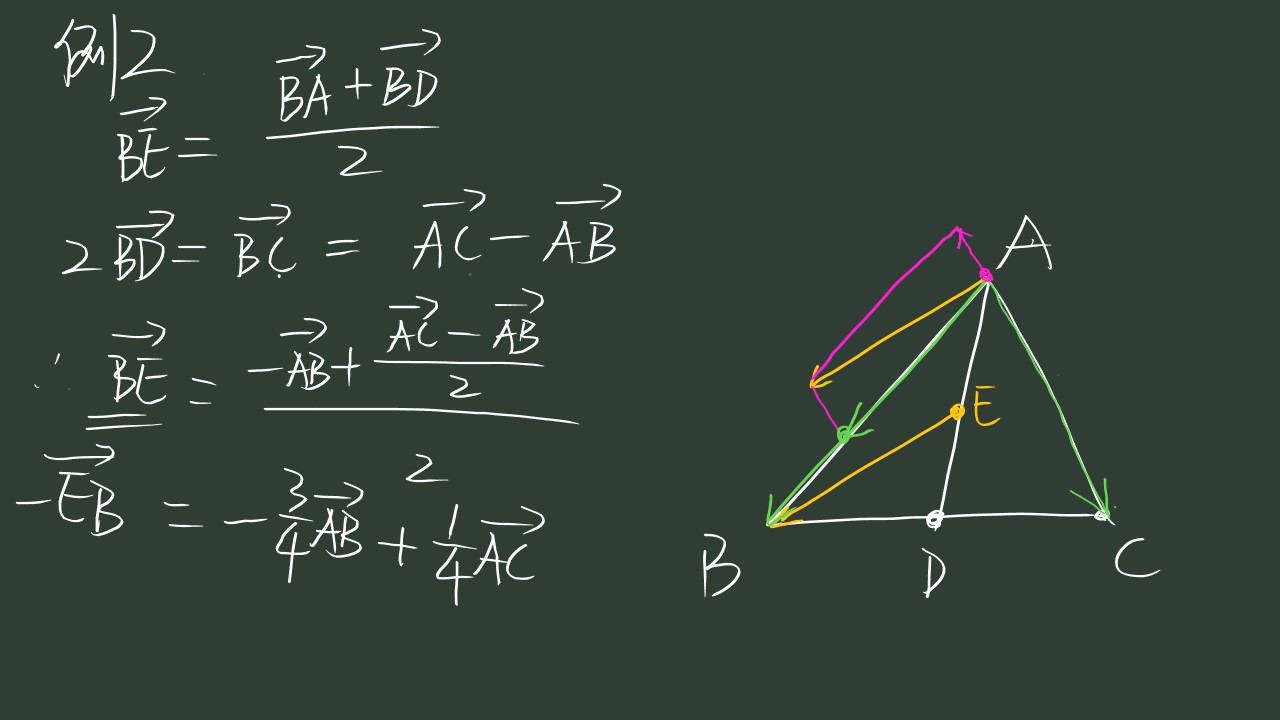 例2
$\overrightarrow{BE} = \frac{\overrightarrow{BA} + \overrightarrow{BD}}{2}$
$2\overrightarrow{BD} = \overrightarrow{BC} = \overrightarrow{AC} - \overrightarrow{AB}$
$\therefore \overrightarrow{BE} = \frac{-\overrightarrow{AB} + \frac{\overrightarrow{AC} - \overrightarrow{AB}}{2}}{2}$
$-\overrightarrow{EB} = -\frac{3}{4}\overrightarrow{AB} + \frac{1}{4}\overrightarrow{AC}$
A
E
B D C